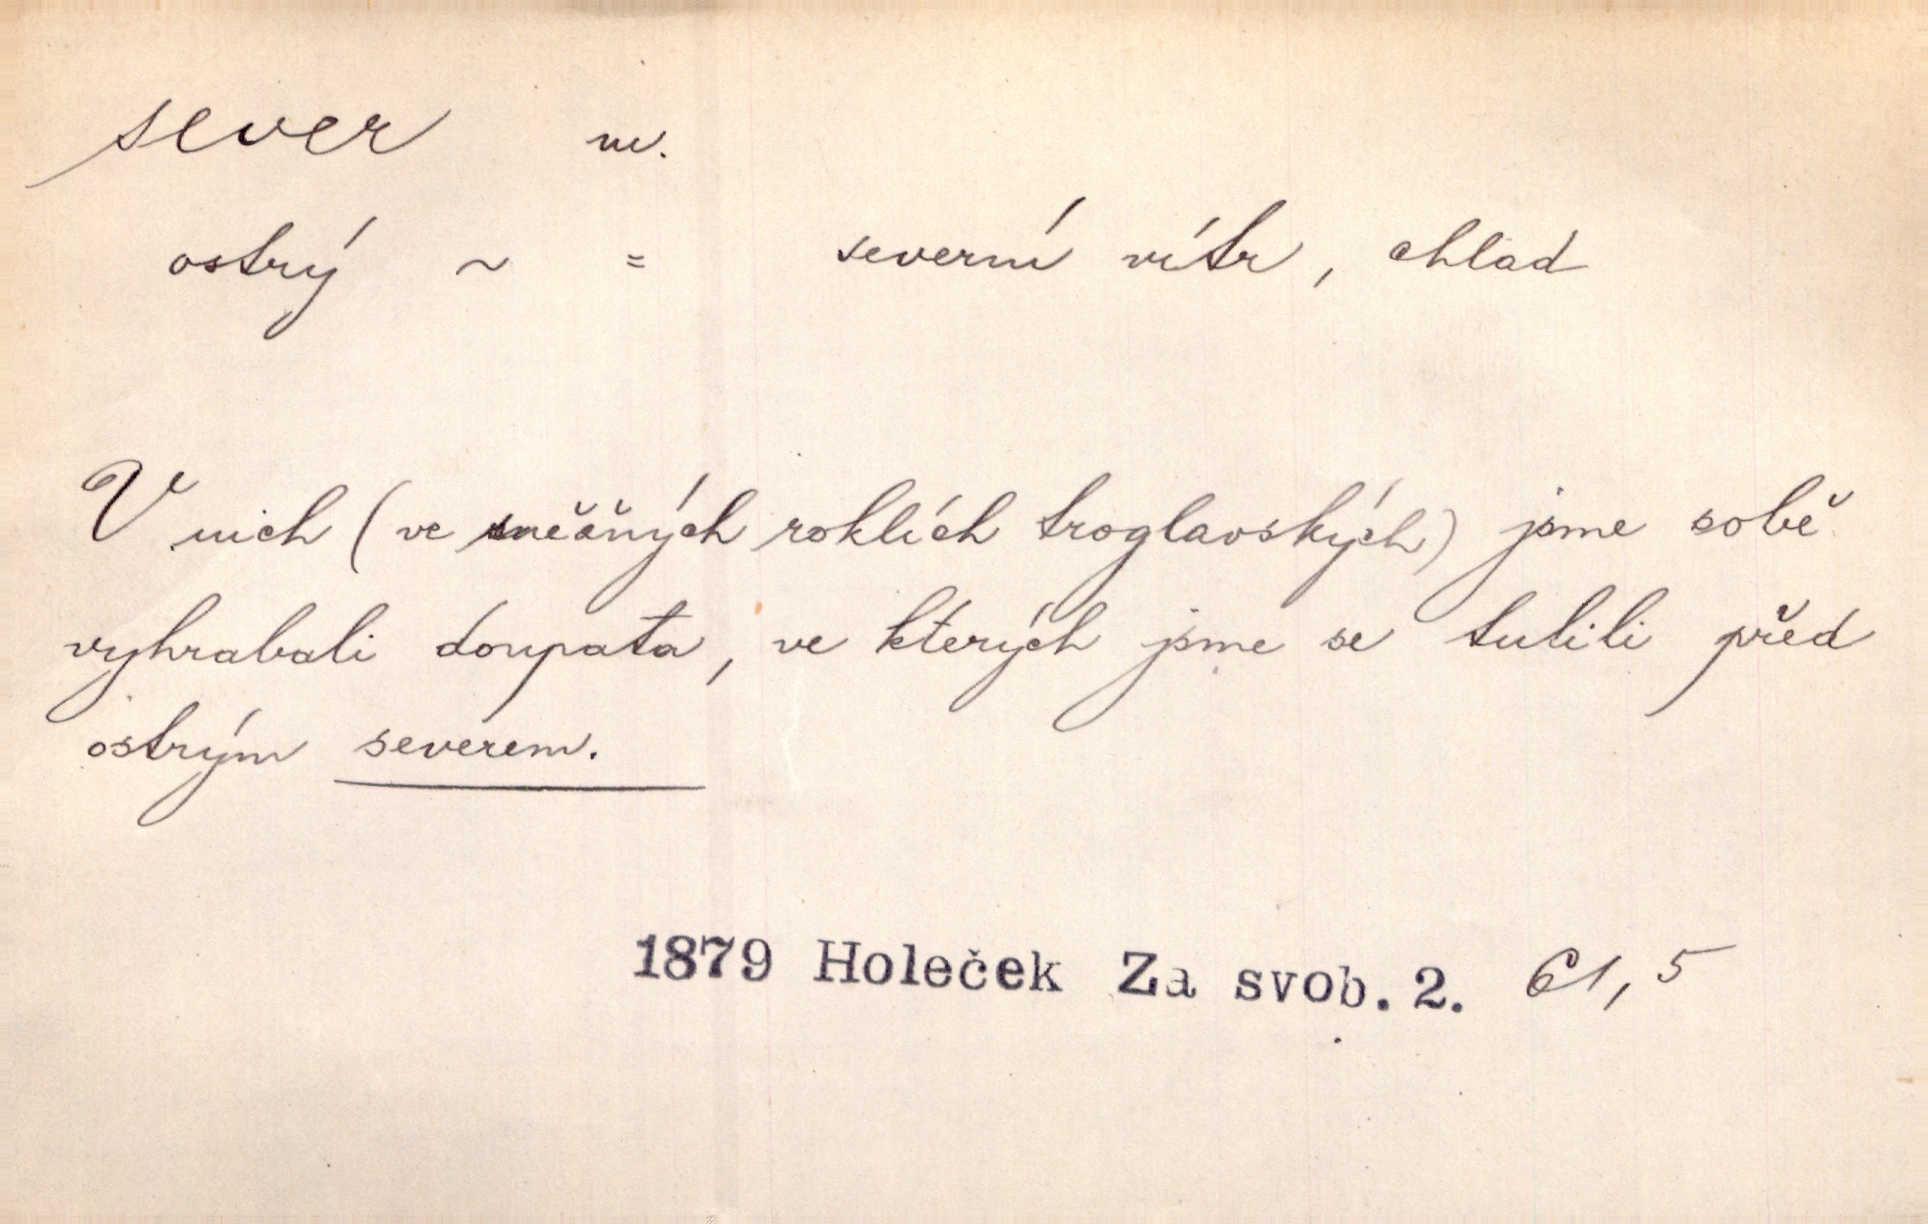 sever m.
ostrý ~ = severní vítr, chlad
V nich (ve sněžných roklích troglavských) jsme sobě
vyhrabali doupata, ve kterých jsme se tulili před
ostrým severem.
1879 Holeček Za svob. 2. 61,5